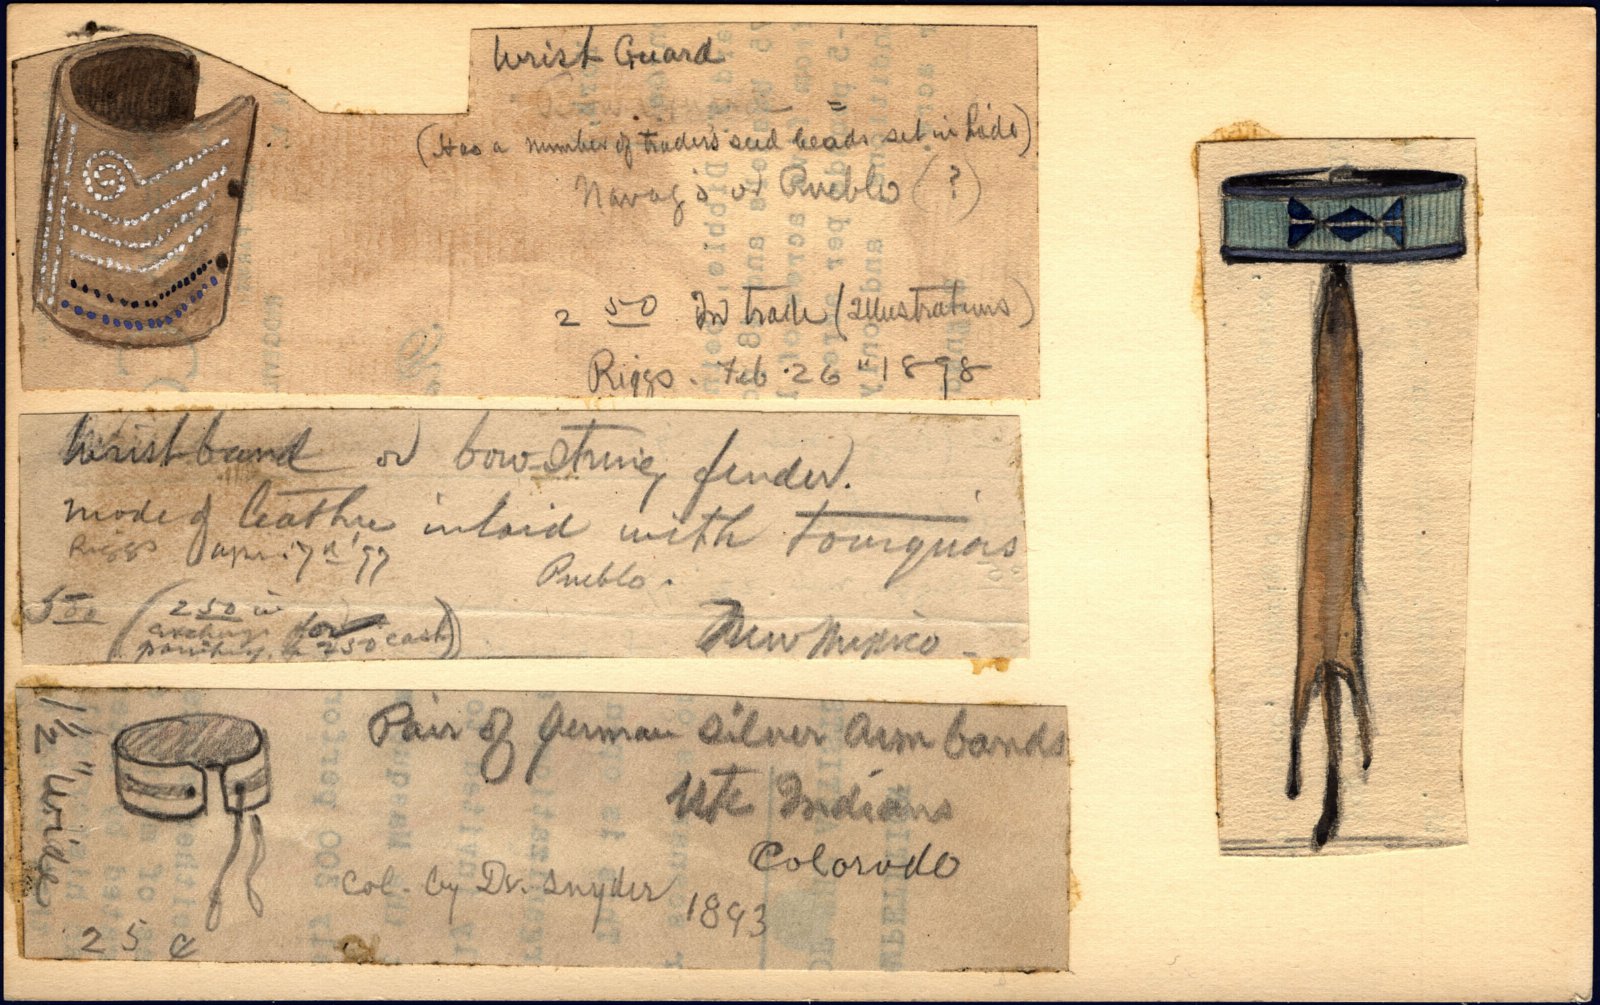 Wrist Guard
(Has a number of traders seed beads set in hide)
Navajo or Pueblo (?)
2 50 In trade (Illustrations)
Riggs. Feb. 26" 1898
Wrist band or bowstring fender.
made of leather inlaid with tourquois
Riggs apr. 7th '97
Pueblo.
5 00 (2 50 in
exchange for
painting, & 2 50 cash)
New Mexico
Pair of German silver Arm bands
Ute Indians
Colorado
Col. by Dr. Snyder 1893
1 1/2" wide
25 ¢